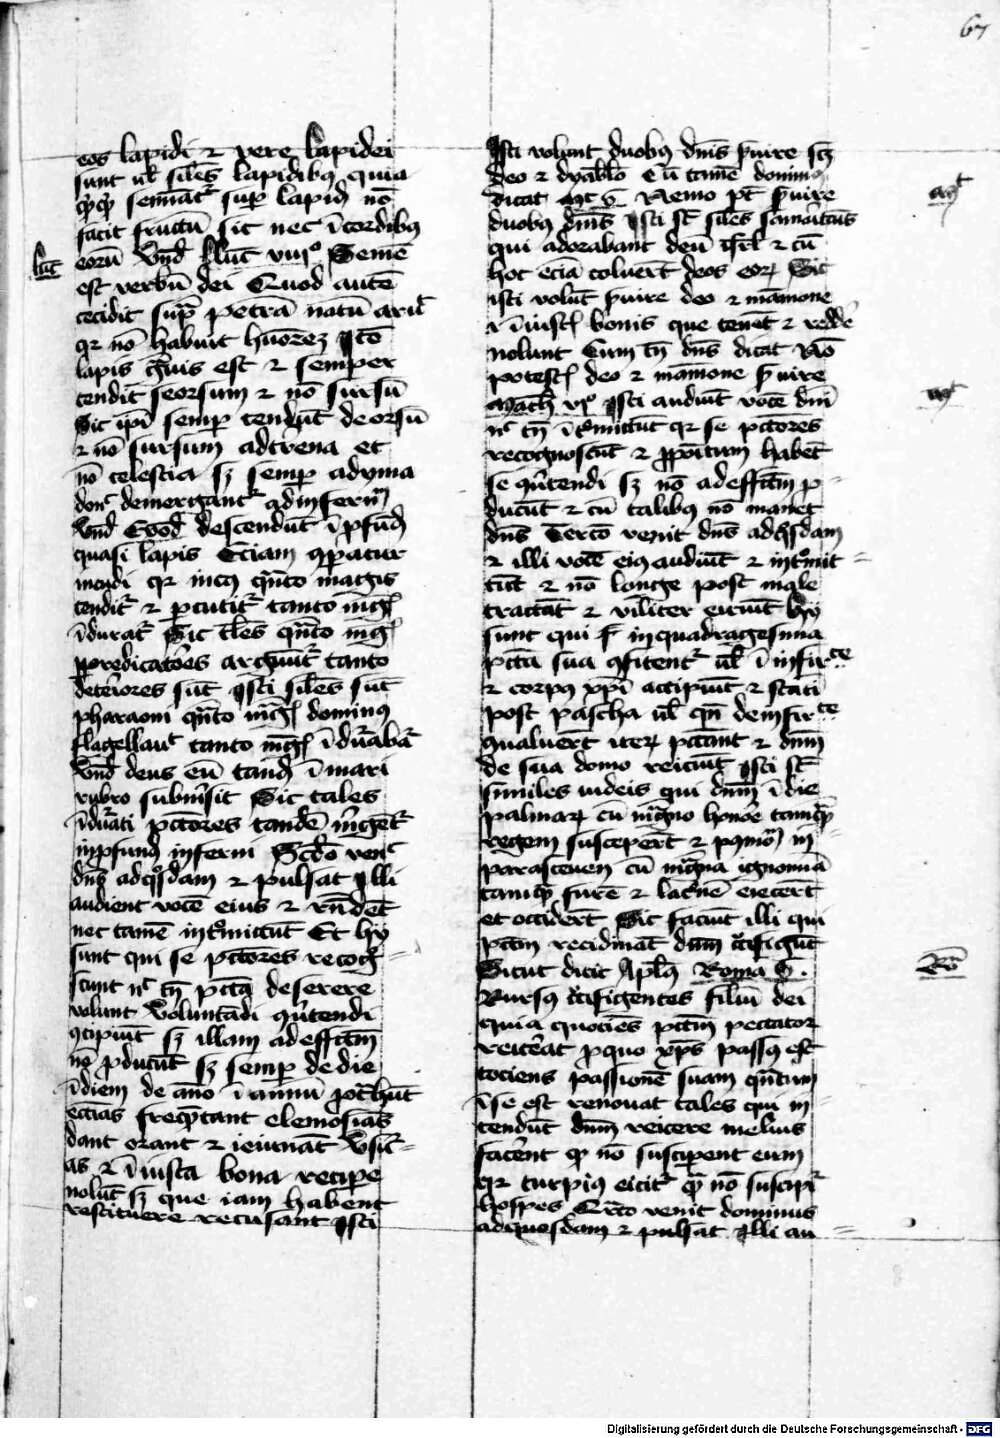 67
eos lapidei ⁊ vere lapidei
sunt ul̛ siles̄ lapidibꝰ quia
semīat͛ sup̱ lapid̛ nō
facit fructū sic nec ī cordibꝰ
eorū Vnd̛ luc̄ viijº Semē
luc̄
est verbū dei Quod autē
cecidit sup̱ petrā natū aruit
qꝛ nō habuit hūorez Itō
lapis g̃uis est ⁊ semper
tendit deorsum ⁊ nō sursū
Sic ip̄i semp̱ tendūt deorsū
⁊ nō sursum ad terrena et
nō celestia sꝫ semp̱ ad yma
don̛ demergant͛ ad infernū
Vnd̛ Exod̛ descendūt ī ꝓfūd̛
quasi lapis Eciam ꝯparatur
incudi qꝛ incꝰ qn̄to magis
tendit͛ ⁊ ꝑcutit͛ tanto mag̛
īdurat͛ Sic tales qn̄to mag̛
predicatores arguūt͛ tanto
deteriores sūt Isti siles̄ sūt
pharaoni qn̄to mag̛ dominꝰ
flagellauit tanto mag̛ īdurabat͛
Vnd̛ deus eū tand̛ ī mari
rubro submersit Sic tales
īdurati pctōres tandē merget͛
in ꝓfund̛ inferni Scdō venit
dn̄s ad qͦsdam ⁊ pulsat Illi
audient vocē eius ⁊ rn̄dēt
nec tamē intͦmittūt Et hy
sunt qui se pctōres recog=
scunt nͨ tn̄ pctā deserere
volunt Voluntādi ꝯūtendi
ꝯcipiūt sꝫ illam ad effectm̄
nō ꝓducūt sꝫ semp̱ de die
ī diem de āno ī annū
ecc̄ias freq̄ntant elemosīas
dant orant ⁊ ieiunāt Vsur=
as ⁊ īiusta bona recipe
nolūt sꝫ que iam habent
restituere recusant Isti
Isti volunt duobꝰ dn̄is s̱uire sꝫ
deo ⁊ dyabolo Cū tamē dominꝰ
dicat Mt 6 Nemo pt̄ s̱uire
mt͛
duobꝰ dn̄is Isti st̄ siles̄ samaritanis
qui adorabant deū isrl̄ ⁊ cū
hoc eciā coluerūt deos eoꝝ Sic
isti volūt s̱uire deo ⁊ māmone
⁊ īiust̛ bonis que tenēt ⁊ redde
nolunt Cum tn̄ dn̄s dicat Nō
potest̛ deo ⁊ māmone s̱uire
Math̄ vjº Isti audiūt vocē dn̄i
mt͛
nͨ tn̄ ītͦmittūt qꝛ se pctōres
recognoscūt ⁊ ꝓpōitum habēt
se ꝯūtendi sꝫ nō ad effectm̄ ꝓ=
ducūt ⁊ cū talibꝰ nō manet
dn̄s Tercō venit dn̄s ad qͦsdam
⁊ illi vocē eiꝰ audiūt ⁊ intͦmit=
tūt ⁊ nō longe post male
tractāt ⁊ viliter eiciūt Hy
sunt qui in quadragesima
pctā sua ꝯfitent͛ ul̛ ī infirͭᵉ
⁊ corpꝰ xp̄i accipiūt ⁊ statī
post pascha ul̛ qn̄ de infirͭᵉ
ꝯualuerūt iteꝝ pctānt ⁊ dn̄m
de sua domo reiciūt Isti st̄
similes iudeis qui dn̄m ī die
palmaꝝ cū magno honore tamq̄
regem susceperūt ⁊ in
parasceuen cū magna ignominia
tamq̄ furē ⁊ latronē eiecerūt
et occiderūt Sic faciūt illi qui
pctm̄ recidiuāt dum crucifigūt
Sicut dicit Apl̄us Roma 6.
Ro
Rursꝰ crucifigentes filiū dei
quia quociēs pctm̄ peccator
reiterat ꝓ quo xp̄s passꝰ est
tociens passionē suam qn̄tum
ī se est renouat tales qui in=
tendūt dn̄m reicere melius
facerent qꝫ nō susciperent eum
qꝛ turpius eicit͛ qꝫ nō suscipit͛
hospes Qͬto venit dominus
ad quosdam ⁊ pulsat Illi au=
Digitalisierung gefördert durch die Deutsche Forschungsgemeinschaft - DFG